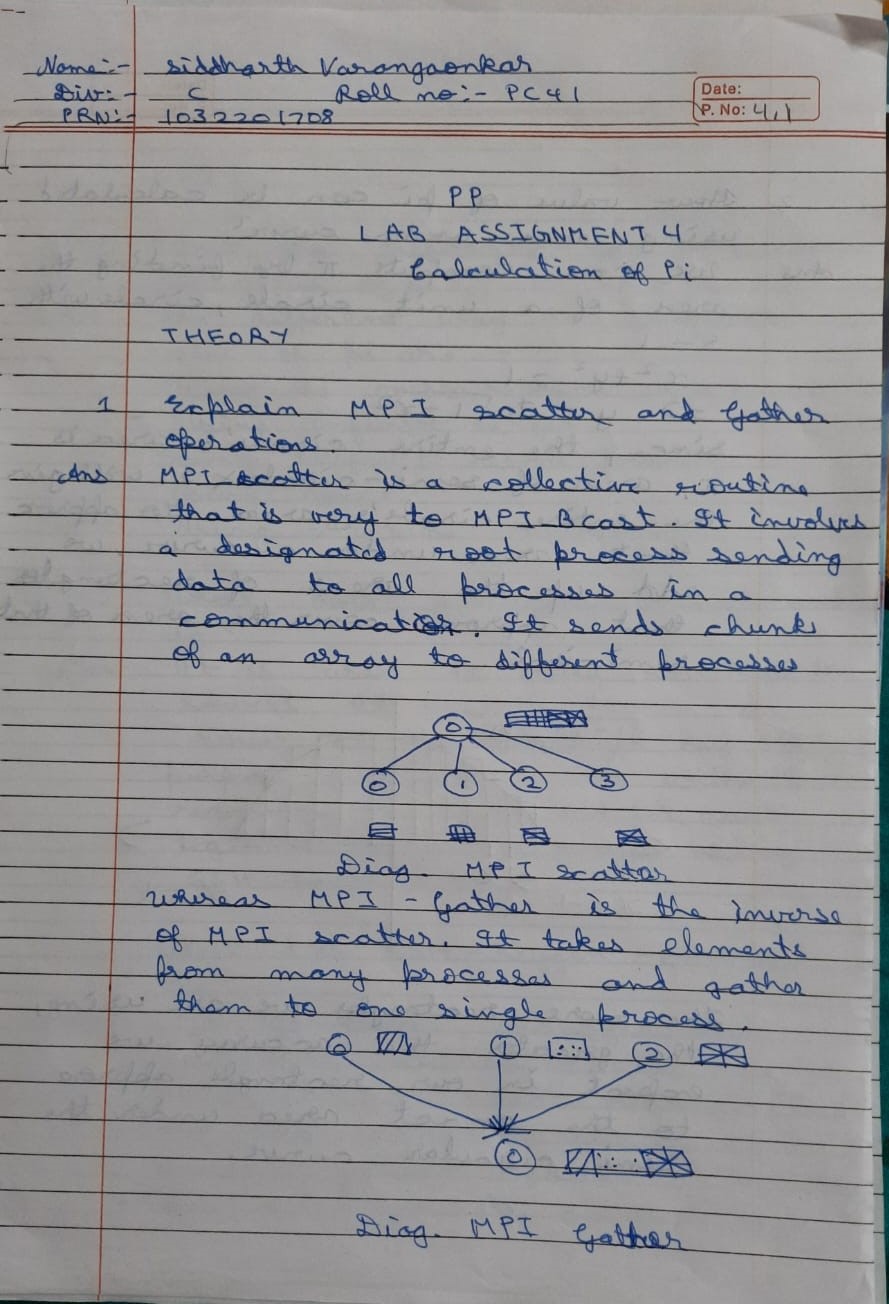 Name:- Siddharth Varangaonkar
Div:- C Roll no:- PC41
PRN:- 1032201708
Date:
P. No: 4.1
PP
LAB ASSIGNMENT 4
Calculation of Pi
THEORY
1 Explain MPI scatter and Gather
operations.
Ans MPI scatter is a collective routine
that is very to MPI Bcast. It involves
a designated root process sending
data to all processes in a
communicator. It sends chunks
of an array to different processes
0
0 1 2 3
Diag. MPI scatter
whereas MPI - Gather is the inverse
of MPI scatter. It takes elements
from many processes and gather
them to one single process.
0 1 2
0
Diag. MPI Gather